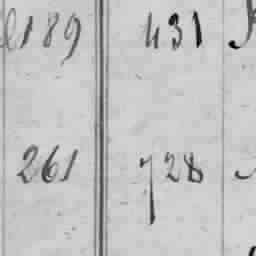 189 431
261 728